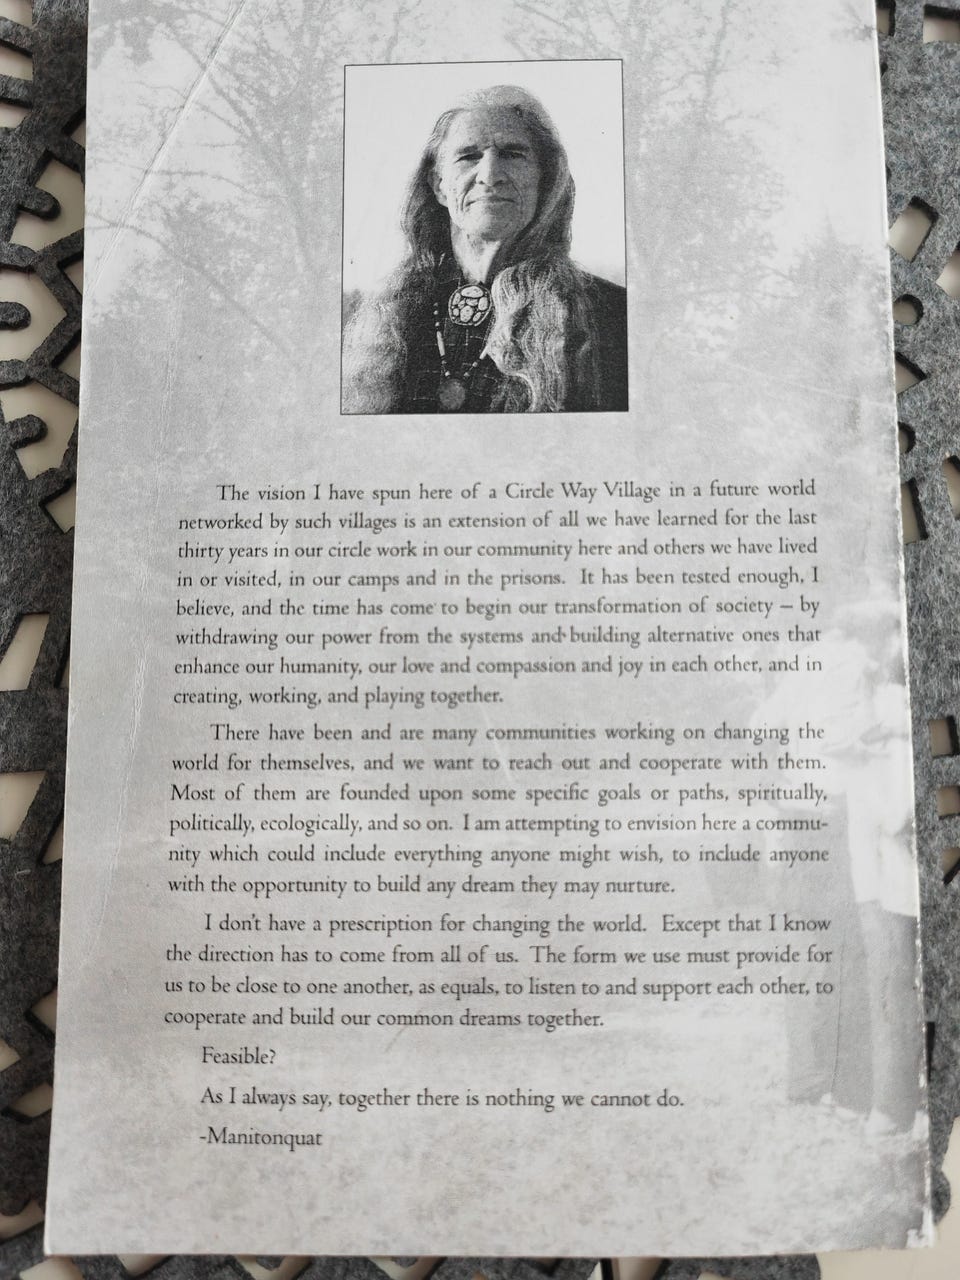 The vision I have spun here of a Circle Way Village in a future world
networked by such villages is an extension of all we have learned for the last
thirty years in our circle work in our community here and others we have lived
in or visited, in our camps and in the prisons. It has been tested enough, I
believe, and the time has come to begin our transformation of society – by
withdrawing our power from the systems and building alternative ones that
enhance our humanity, our love and compassion and joy in each other, and in
creating, working, and playing together.
There have been and are many communities working on changing the
world for themselves, and we want to reach out and cooperate with them.
Most of them are founded upon some specific goals or paths, spiritually,
politically, ecologically, and so on. I am attempting to envision here a commu-
nity which could include everything anyone might wish, to include anyone
with the opportunity to build any dream they may nurture.
I don't have a prescription for changing the world. Except that I know
the direction has to come from all of us. The form we use must provide for
us to be close to one another, as equals, to listen to and support each other, to
cooperate and build our common dreams together.
Feasible?
As I always say, together there is nothing we cannot do.
-Manitonquat